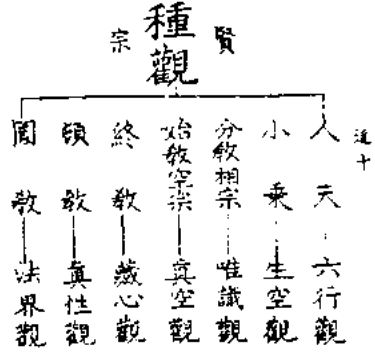 十
賢宗
種觀
人天 六行觀
小乘 生空觀
分教相宗 唯識觀
始教空宗 真空觀
終教 藏心觀
頓教 真性觀
圓教 法界觀